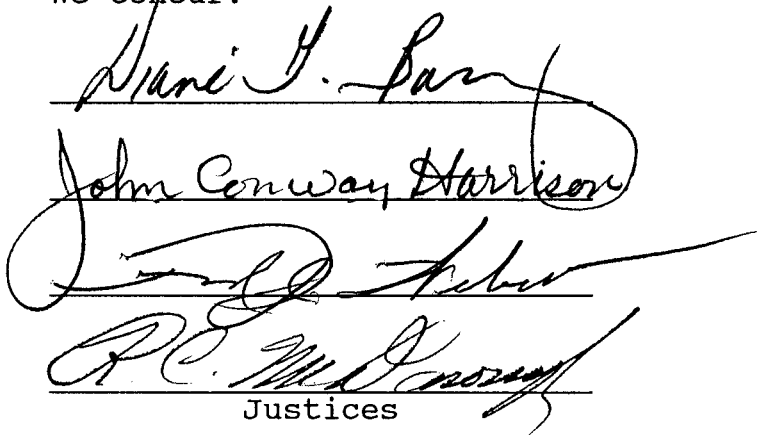 We concur:
Diane G. Barz
John Conway Harrison
R. C. McDonough
Justices